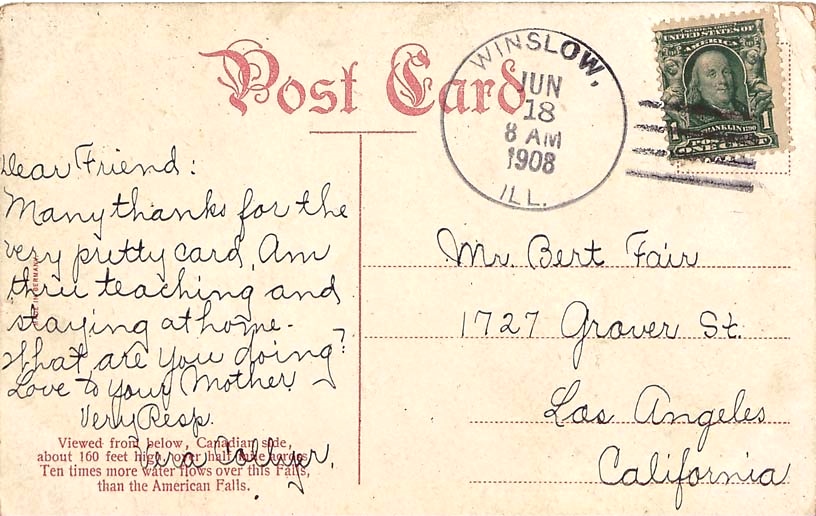 Post Card
WINSLOW,
JUN
18
8 AM
1908
ILL.
SERIES 1902
UNITED STATES OF
AMERICA
FRANKLIN
1 1
POSTAGE
ONE CENT
Dear Friend:
Many thanks for the
very pretty card. Am
thru teaching and
staying at home.
What are you doing?
Love to your Mother.
Very Resp.
Vera
MADE IN GERMANY
Mr. Bert Fair
1727 Grover St.
Los Angeles
California
Viewed from below, Canadian side,
about 160 feet high, over half mile across.
Ten times more water flows over this Falls,
than the American Falls.